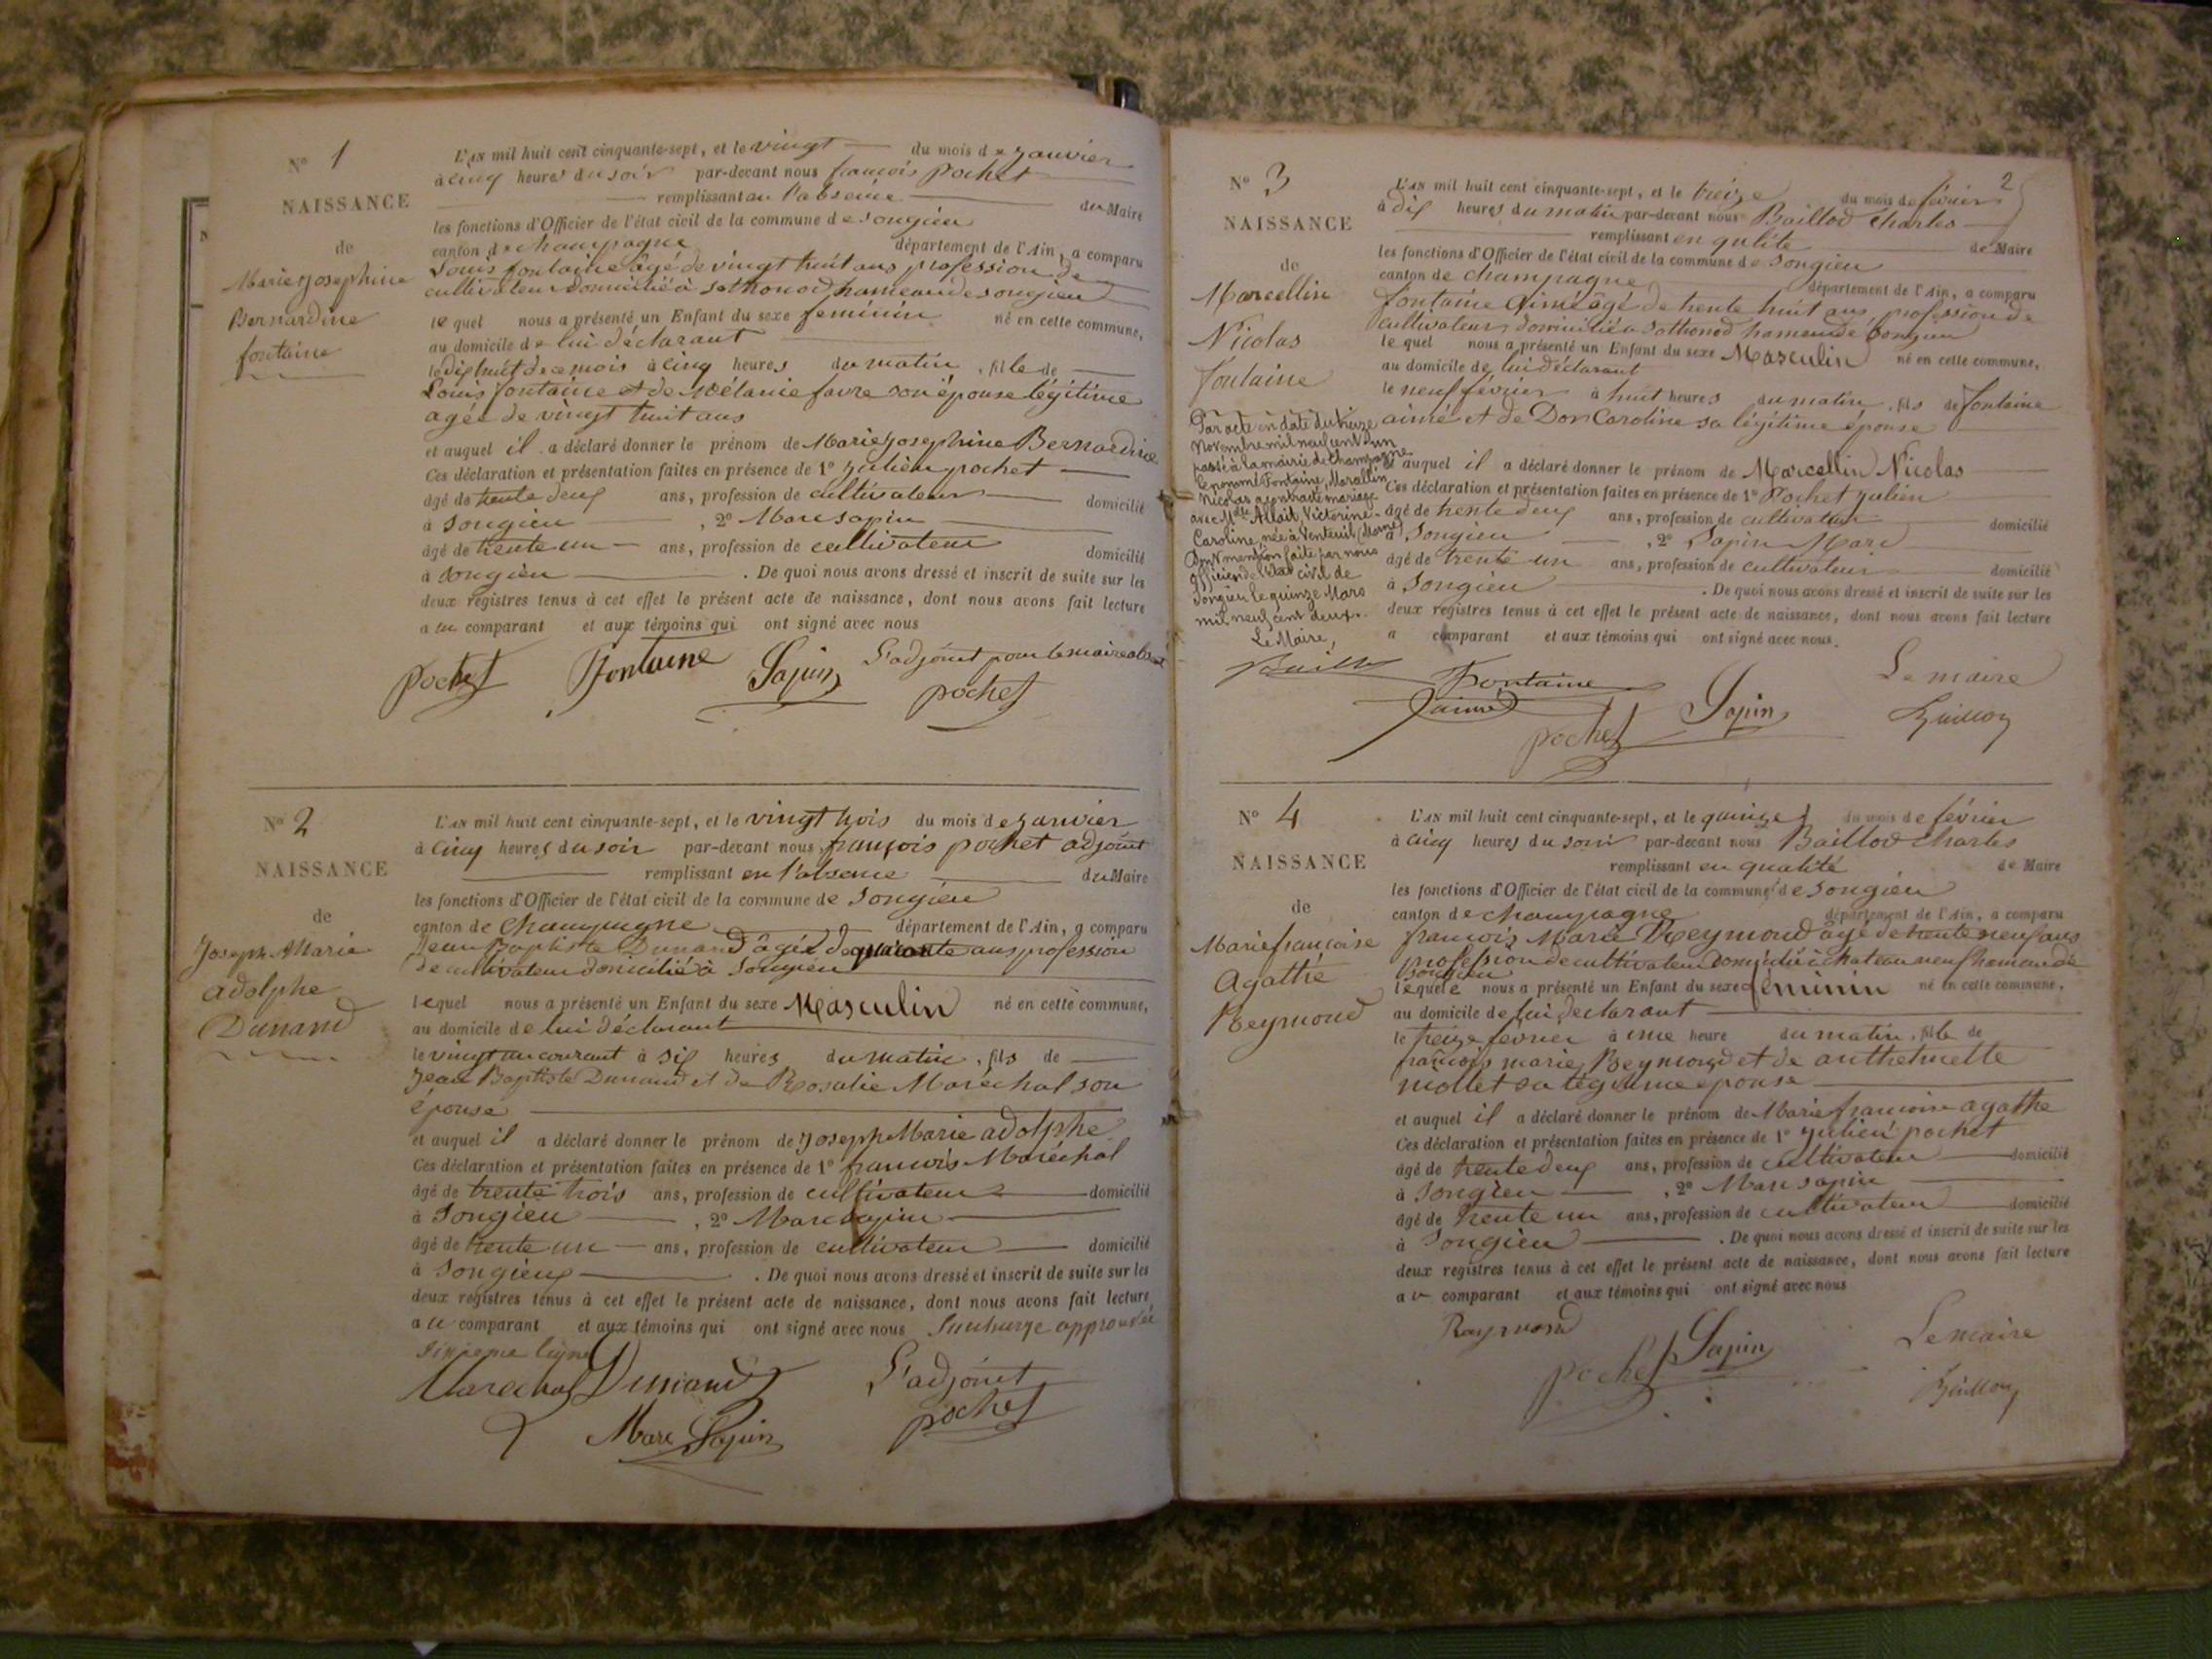 N° 1
NAISSANCE
de
Marie Josephine
Bernardine
fontaine
L'AN mil huit cent cinquante-sept, et le vingt du mois de janvier
à cinq heures du soir par-devant nous françois Pochet
remplissant en l'absence du Maire
les fonctions d'Officier de l'état civil de la commune de Songieu
canton de champagne département de l'Ain, a comparu
Louis fontaine âgé de vingt huit ans profession de
cultivateur domicilié à Sothonod hameau de songieu
lequel nous a présenté un Enfant du sexe féminin né en cette commune,
au domicile de lui déclarant
le dix huit de ce mois à cinq heures du matin, fille de
Louis fontaine et de Mélanie favre son épouse légitime
agée de vingt huit ans
et auquel il a déclaré donner le prénom de Marie Josephine Bernardine
Ces déclaration et présentation faites en présence de 1° Julien pochet
âgé de trente deux ans, profession de cultivateur domicilié
à Songieu, 2° Marc sapin
âgé de trente un ans, profession de cultivateur domicilié
à Songieu. De quoi nous avons dressé et inscrit de suite sur les
deux registres tenus à cet effet le présent acte de naissance, dont nous avons fait lecture
au comparant et aux témoins qui ont signé avec nous
Pochet Fontaine Sapin L'adjoint pour le maire absent
pochet
N° 2
NAISSANCE
de
Joseph Marie
adolphe
Dunand
L'AN mil huit cent cinquante-sept, et le vingt trois du mois de janvier
à cinq heures du soir par-devant nous françois pochet adjoint
remplissant en l'absence du Maire
les fonctions d'Officier de l'état civil de la commune de Songieu
canton de Champagne département de l'Ain, a comparu
Jean Baptiste Dunand âgé de quarante ans profession
de cultivateur domicilié à Songieu
lequel nous a présenté un Enfant du sexe Masculin né en cette commune,
au domicile de lui déclarant
le vingt un courant à six heures du matin, fils de
Jean Baptiste Dunand et de Rosalie Maréchal son
épouse
et auquel il a déclaré donner le prénom de Joseph Marie adolphe
Ces déclaration et présentation faites en présence de 1° francois Maréchal
âgé de trente trois ans, profession de cultivateur domicilié
à Songieu, 2° Marc Sapin
âgé de trente un ans, profession de cultivateur domicilié
à Songieu. De quoi nous avons dressé et inscrit de suite sur les
deux registres tenus à cet effet le présent acte de naissance, dont nous avons fait lecture
au comparant et aux témoins qui ont signé avec nous Surcharge approuvée
sixieme ligne
Marechal Dunand L'adjoint
Marc Sapin pochet
2
N° 3
NAISSANCE
de
Marcellin
Nicolas
fontaine
Par acte en date du treize
Novembre mil neuf cent un
passé à la mairie de Champagne
le nommé Fontaine, Marcellin
Nicolas a contracté mariage
avec Mlle Allait, Victorine
Caroline, née à Venteuil (Marne)
Dont mention faite par nous
officier de l'état civil de
Songieu le quinze Mars
mil neuf cent deux.
Le Maire,
L'AN mil huit cent cinquante-sept, et le treize du mois de février
à dix heures du matin par-devant nous Baillod Charles
remplissant en qulité de Maire
les fonctions d'Officier de l'état civil de la commune de Songieu
canton de champagne département de l'Ain, a comparu
fontaine Aimé âgé de trente huit ans, profession de
cultivateur, domicilié à Sothonod hameau de Songieu
lequel nous a présenté un Enfant du sexe Masculin né en cette commune,
au domicile de lui déclarant
le neuf février à huit heures du matin, fils de fontaine
aimé et de Dor Caroline sa légitime épouse
et auquel il a déclaré donner le prénom de Marcellin Nicolas
Ces déclaration et présentation faites en présence de 1° Pochet Julien
âgé de trente deux ans, profession de cultivateur domicilié
à Songieu, 2° Sapin Marc
âgé de trente un ans, profession de cultivateur domicilié
à Songieu. De quoi nous avons dressé et inscrit de suite sur les
deux registres tenus à cet effet le présent acte de naissance, dont nous avons fait lecture
a comparant et aux témoins qui ont signé avec nous.
Fontaine Le maire
aimé Sapin
pochet
N° 4
NAISSANCE
de
Marie francoise
Agathe
Reymond
L'AN mil huit cent cinquante-sept, et le quinze du mois de février
à cinq heures du soir par-devant nous Baillod Charles
remplissant en qualité de Maire
les fonctions d'Officier de l'état civil de la commune de Songieu
canton de champagne département de l'Ain, a comparu
françois Marie Reymond âgé de trente neuf ans
profession de cultivateur domicilié à chateau neuf hameau de
Songieu
lequel nous a présenté un Enfant du sexe féminin né en cette commune,
au domicile de lui declarant
le treize fevrier à une heure du matin, fille de
françois marie Reymond et de anthelmette
mollet sa légitime epouse
et auquel il a déclaré donner le prénom de Marie francoise agathe
Ces déclaration et présentation faites en présence de 1° Julien pochet
âgé de trente deux ans, profession de cultivateur domicilié
à Songieu, 2° Marc sapin
âgé de trente un ans, profession de cultivateur domicilié
à Songieu. De quoi nous avons dressé et inscrit de suite sur les
deux registres tenus à cet effet le présent acte de naissance, dont nous avons fait lecture
au comparant et aux témoins qui ont signé avec nous
Raymond Le maire
pochet Sapin